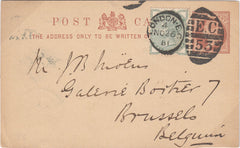 POST CARD
THE ADDRESS ONLY TO BE WRITTEN
LONDON E.C
4
NO 26
81
E.C.
53
Mr J. B. Moens
Galerie Bortier 7
Brussels
Belgium